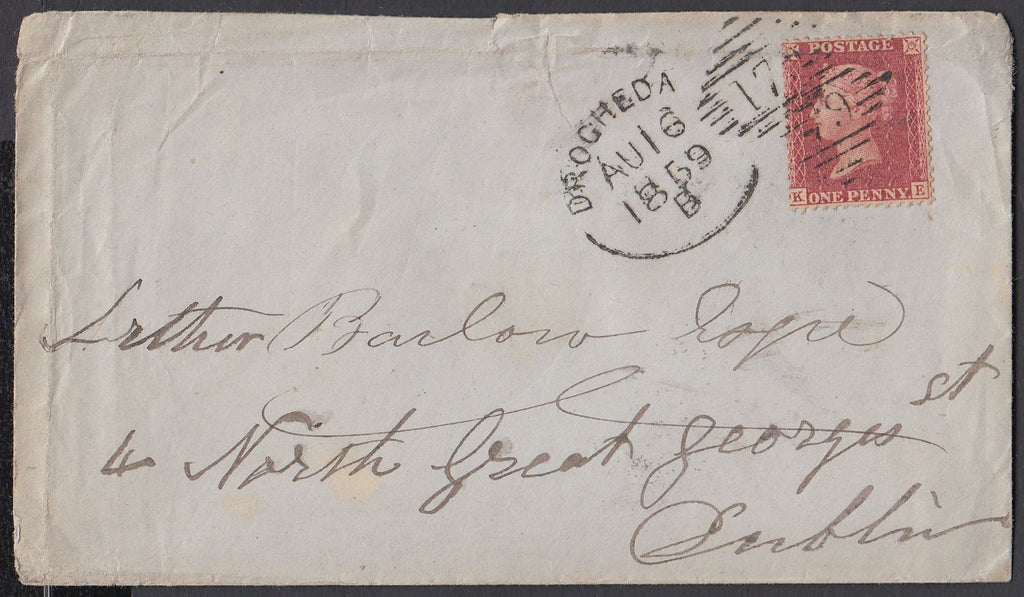 DROGHEDA
AU 16
1859
B
179
POSTAGE
K ONE PENNY E
Arthur Barlow Esqre
4 North Great Georges st
Dublin